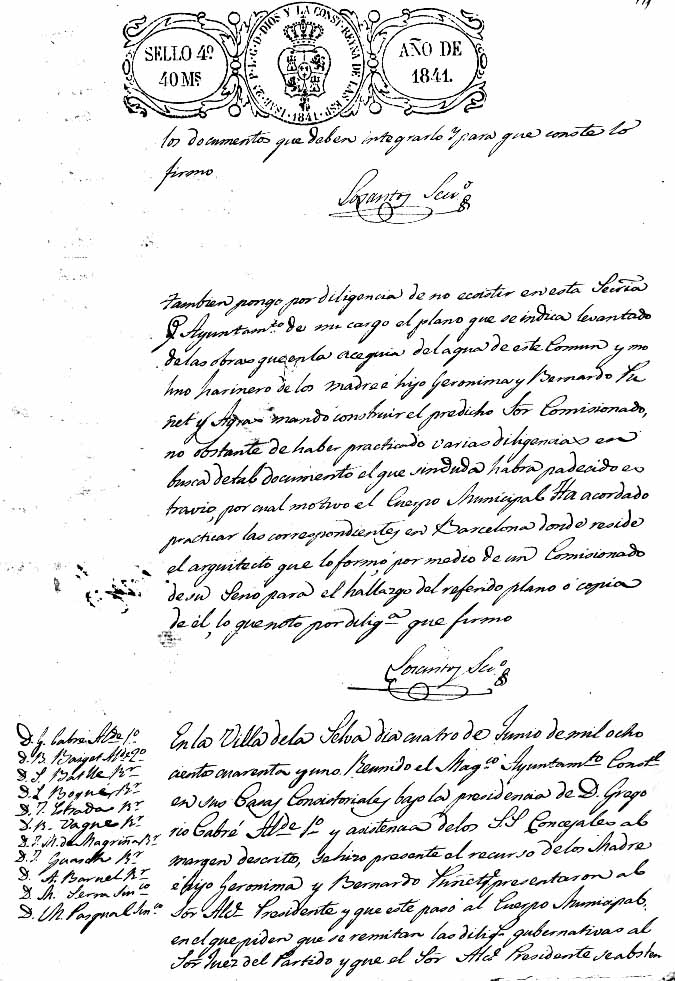 SELLO 4º
40 Mˢ
ISAB. 2ª P. L. G. D. DIOS Y LA CONST. REYNA DE LAS ESP.
1841.
AÑO DE
1841.
los documentos que deben integrarlo y para que conste lo
firmo
Scrio
tambien pongo por diligencia de no ecsistir en esta Secria
Ayuntamto de mi cargo el plano que se indica levantado
de las obras que en la acequia del agua de este Comun y mo
lino harinero de los madre é hijo Geronima y Bernardo
ñet y mando construir el predicho Sor Comisionado,
no obstante de haber practicado varias diligencias en
busca de tal documento el que sin duda habra padecido es
travio, por cual motivo el Cuerpo Municipal Ha acordado
practicar las correspondientes en Barcelona donde reside
el arquitecto que lo formó por medio de un Comisionado
de su Seno para el hallazgo del referido plano ó copia
de él, lo que noto por diliga que firmo
Scrio
D. G. Cabré Alde 1º
D. B. Alde 2º
D. J. Batlle Rr
D. Boqué Rr
D. J. Estrada Rr
D. B. Vaqué Rr
D. J. M. de Magriñá Rr
D. J. Guasch Rr
D. A. Barnel Rr
D. M. Serra Sinco
D. M. Pasqual Sinco
En la Villa de la Selva dia cuatro de Junio de mil ocho
ciento cuarenta y uno. Reunido el Magco Ayuntamto Constl
en sus Casas Consistoriales bajo la presidencia de D. Grego
rio Cabré Alde 1º y asistencia de los SS Concejales al
margen descrito, se hizo presente el recurso de los Madre
é hijo Geronima y Bernardo presentaron al
Sor Alce Presidente y que este pasó al Cuerpo Municipal,
en el que piden que se remitan las dilig. gubernativas al
Sor Juez del Partido y que el Sor Alce Presidente se absten